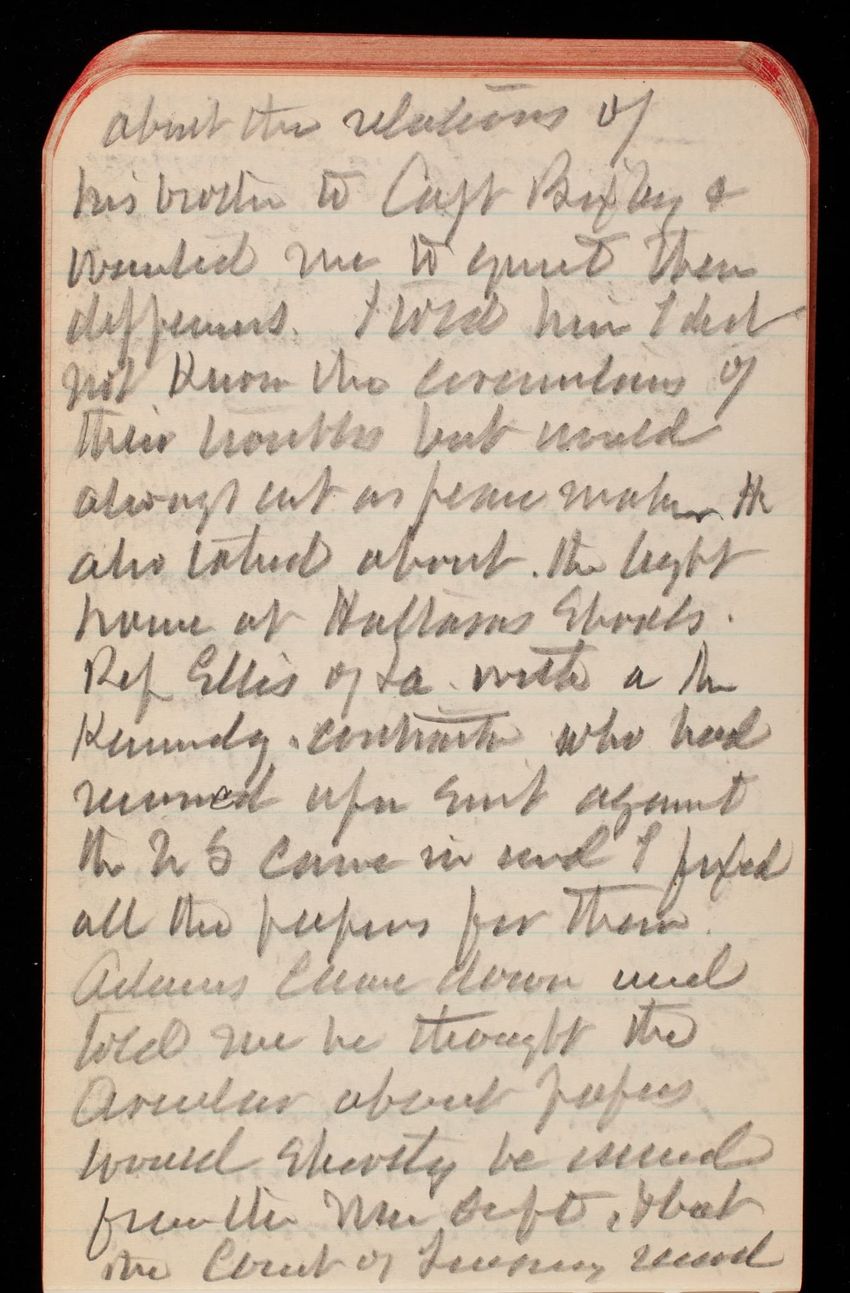 about the relations of
his brother to Capt Bixby &
wanted me to quiet their
differences. I told him I did
not Know the circumstances of
their troubles but would
always act as peace maker He
also talked about the light
house at Hatteras Shoals.
Rep Ellis of La. with a Mr
Kennedy contractor who had
a suit against
the U S came in and I fixed
all the papers for them.
Adams came down and
told me he thought the
Circular about papers
would shortly be issued
from the War Dept, & that
the Court of record